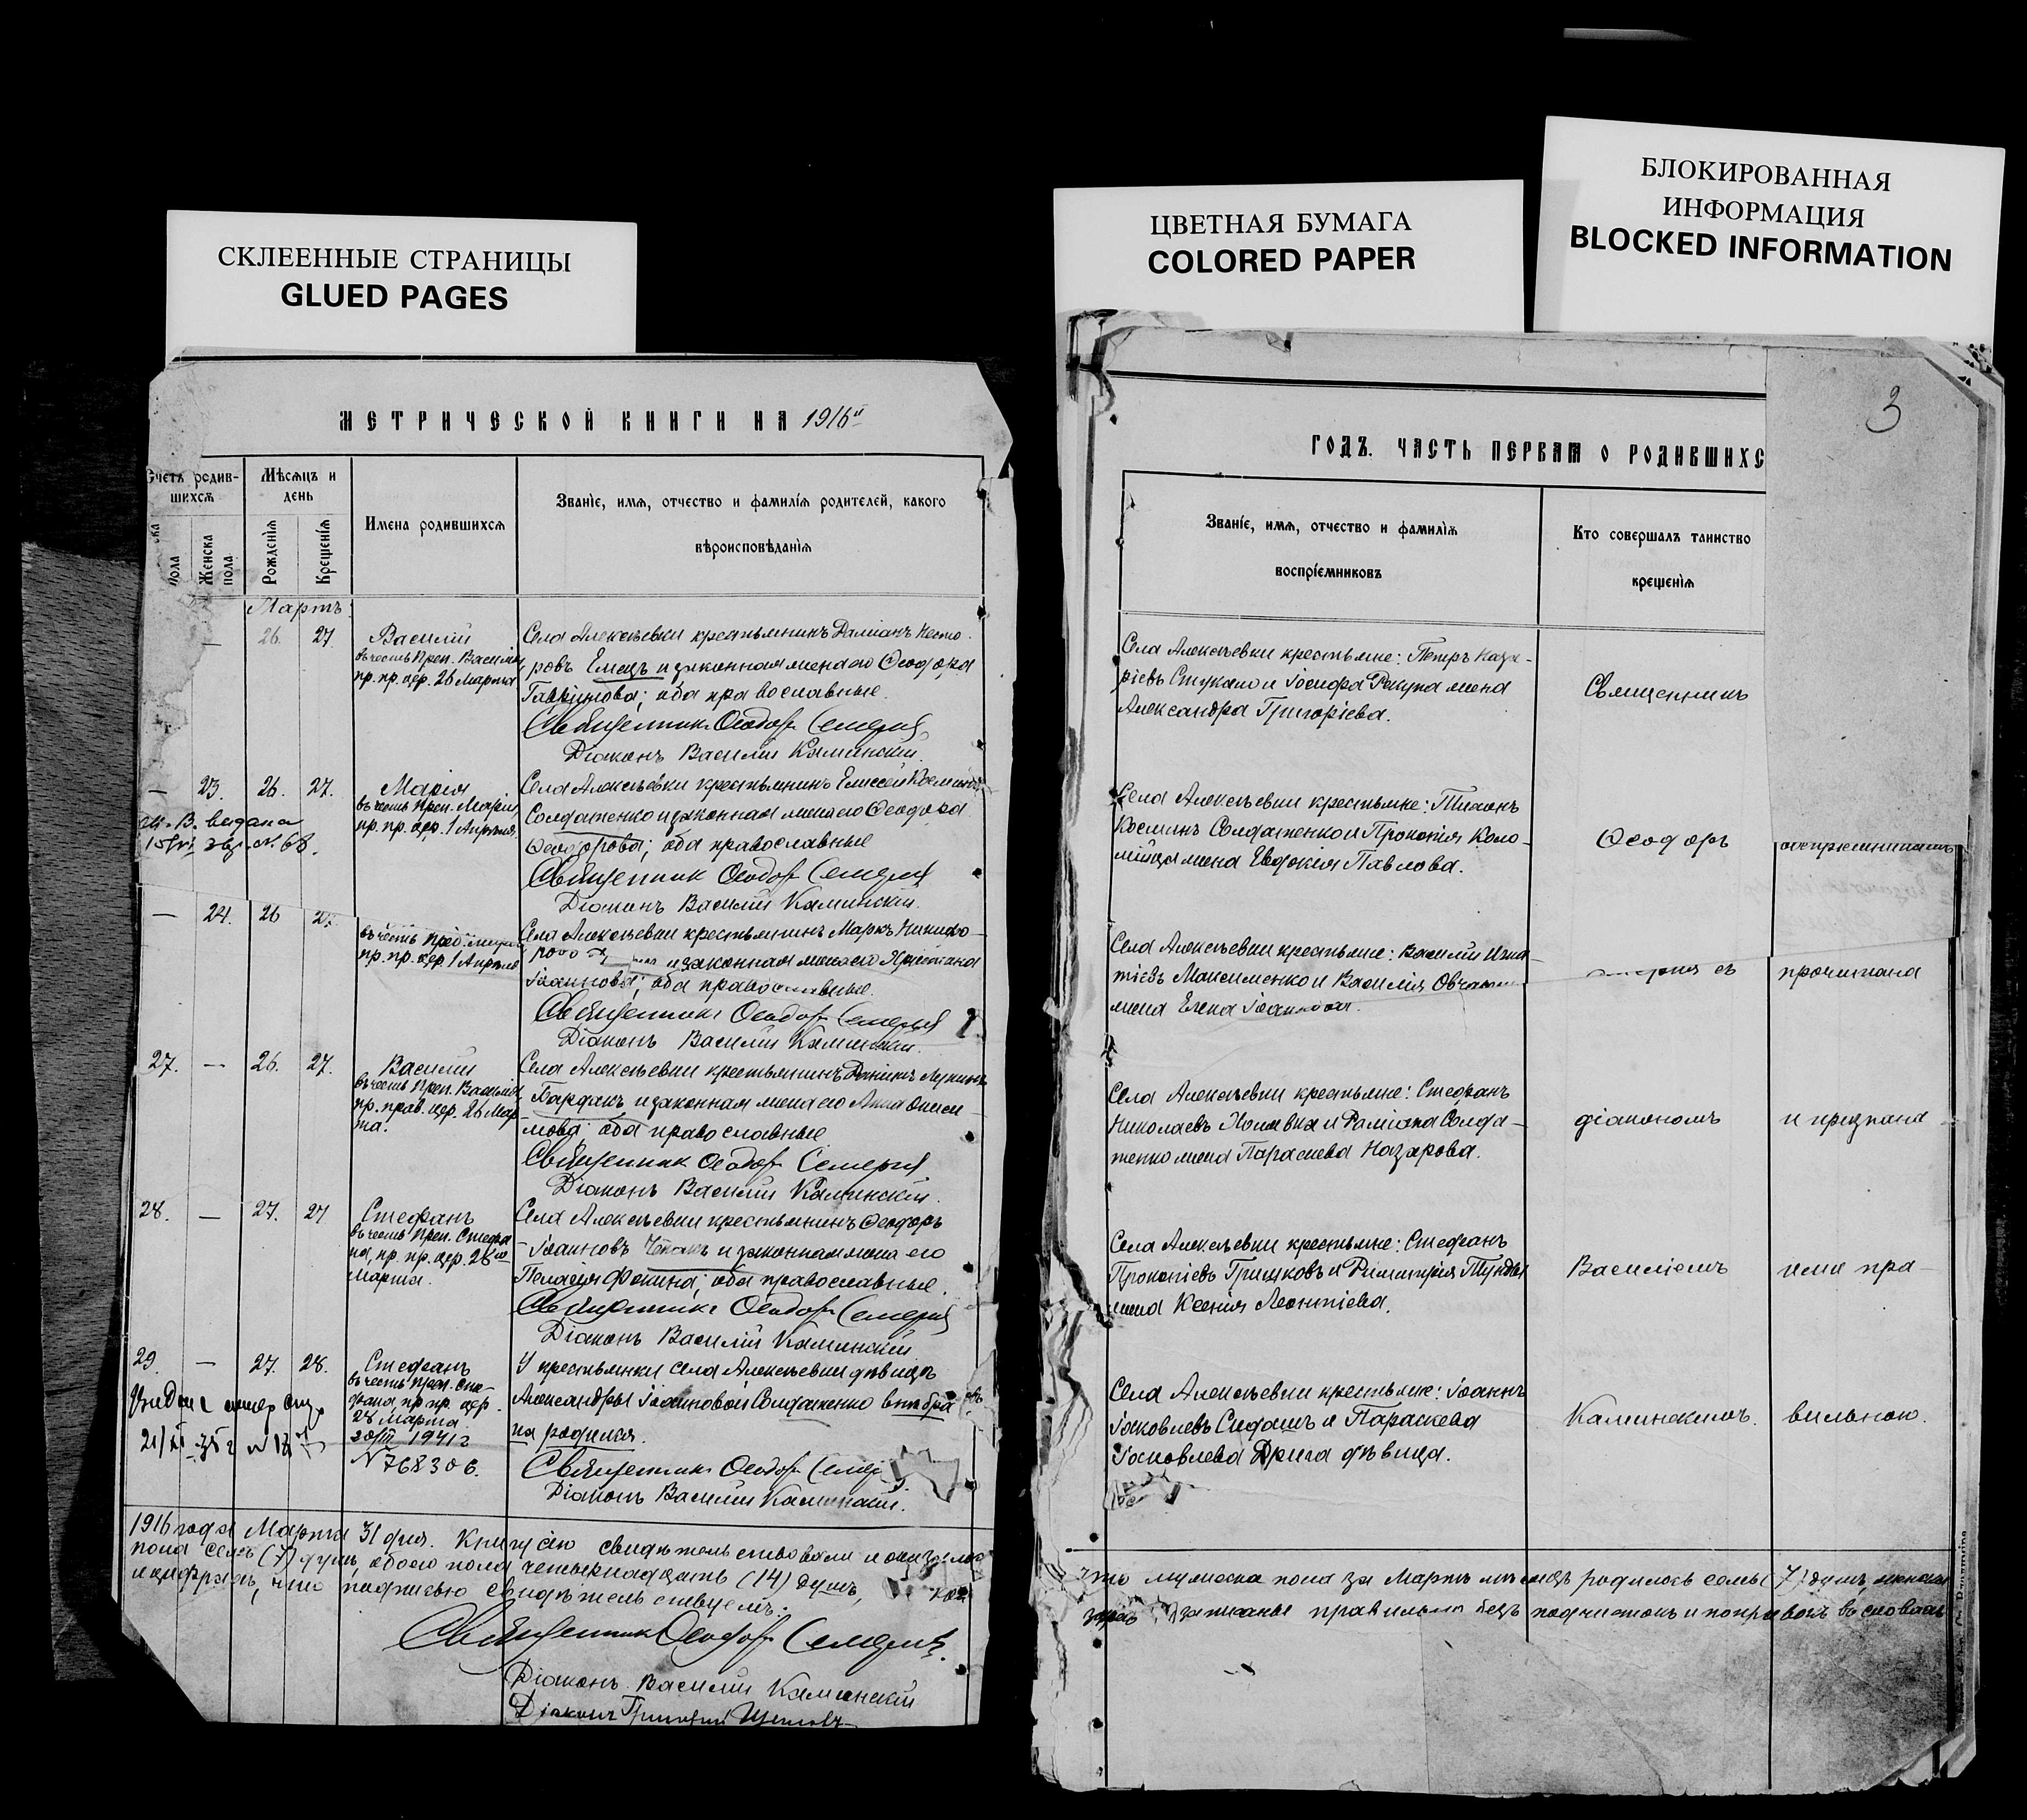 СКЛЕЕННЫЕ СТРАНИЦЫ
GLUED PAGES
ЦВЕТНАЯ БУМАГА
COLORED PAPER
БЛОКИРОВАННАЯ
ИНФОРМАЦИЯ
BLOCKED INFORMATION
МЕТРИЧЕСКОЙ КНИГИ НА 1916й
Счетъ родив-
шихсѧ
Мѣсѧцъ и
день
Имена родившихсѧ
Званіе, имѧ, отчество и фамиліѧ родителей, какого
вѣроисповѣданіѧ
пола
Женска
пола
Рожденіѧ
Крещеніѧ
Мартъ
— 26. 27. Василій
въ честь Преп. Василія
пр. пр. цер. 26 Марта
Села Алексѣевки крестьянинъ Даміанъ Несто-
ровъ Емецъ и законная жена его Ѳеодора
оба православные.
Священникъ Ѳеодоръ Семерня
Діаконъ Василій Каминскій.
— 23. 26. 27. Марія
въ честь Преп. Маріи,
пр. пр. цер. 1 Апрѣля.
Села Алексѣевки крестьянинъ Елисей
Солдатенко и законная жена его Ѳеодора
Ѳеодорова; оба православные
Священникъ Ѳеодоръ Семерня
Діаконъ Василій Каминскій.
— 24. 26 27.
въ честь Преп.
пр. пр. цер. 1 Апрѣля
Села Алексѣевки крестьянинъ Маркъ
и законная жена его
Іоаннова; оба православные.
Священникъ Ѳеодоръ Семерня
Діаконъ Василій Каминскій.
27. — 26. 27. Василій
въ честь Преп. Василія
пр. прав. цер. 26 Мар-
та.
Села Алексѣевки крестьянинъ Даніилъ Лукинъ
и законная жена его АннаОниси-
мова; оба православные
Священникъ Ѳеодоръ Семерня
Діаконъ Василій Каминскій.
28. — 27. 27 Стефанъ
въ честь Преп. Стефа-
на, пр. пр. цер. 28го
Марта.
Села Алексѣевки крестьянинъ Ѳеодоръ
Іоанновъ и законная жена его
Пелагія Фокина; оба православные.
Священникъ Ѳеодоръ Семерня
Діаконъ Василій Каминскій
29. — 27. 28. Стефанъ
въ честь Преп. Сте-
фана пр. пр. цер.
28 Марта.
20/III 1941 г
N 768306.
У крестьянки села Алексѣевки дѣвицы
Александры Іоанновой Солдатенко внебрач-
но родился.
Священникъ Ѳеодоръ Семерня
Діаконъ Василій Каминскій.
1916 года Марта 31 дня. Книгу сію свидѣтельствовали и оказалось
пола семь (7) душъ, обоего пола четырнадцать (14) душъ,
и цифрахъ, что подписью свидѣтельствуемъ:
Священникъ Ѳеодоръ Семерня.
Діаконъ Василій Каминскій
Діаконъ Григорій
3
ГОДЪ. ЧАСТЬ ПЕРВАѦ О РОДИВШИХС
Званіе, имѧ, отчество и фамиліѧ
воспріемниковъ
Кто совершалъ таинство
крещеніѧ
Села Алексѣевки крестьяне: Петръ Наза-
ріевъ Стукало и Іосифа Рекуна жена
Александра Григоріева.
Священникъ
Села Алексѣевки крестьяне: Тихонъ
Косминъ Солдатенко и Прокопія Коло-
мійца жена Евдокія Павлова.
Ѳеодоръ
Села Алексѣевки крестьяне: Василій Игна-
тіевъ Максименко и Василія
жена Елена Іоаннова.
съ прочитана
Села Алексѣевки крестьяне: Стефанъ
Николаевъ и Даміана Солда-
тенко жена Параскева Назарова.
діакономъ и признана
Села Алексѣевки крестьяне: Стефанъ
Прокопіевъ Гришковъ и Димитрія
жена Ксенія Леонтіева.
Василіемъ ими пра-
Села Алексѣевки крестьяне: Іоаннъ
Іаковлевъ Сидашъ и Параскева
Іаковлева Дрига дѣвица.
Каминскимъ. вильною.
что мужеска пола за Мартъ мѣсяцъ родилось семь (7) душъ, женска
записаны правильно безъ подчистокъ и поправокъ въ словахъ